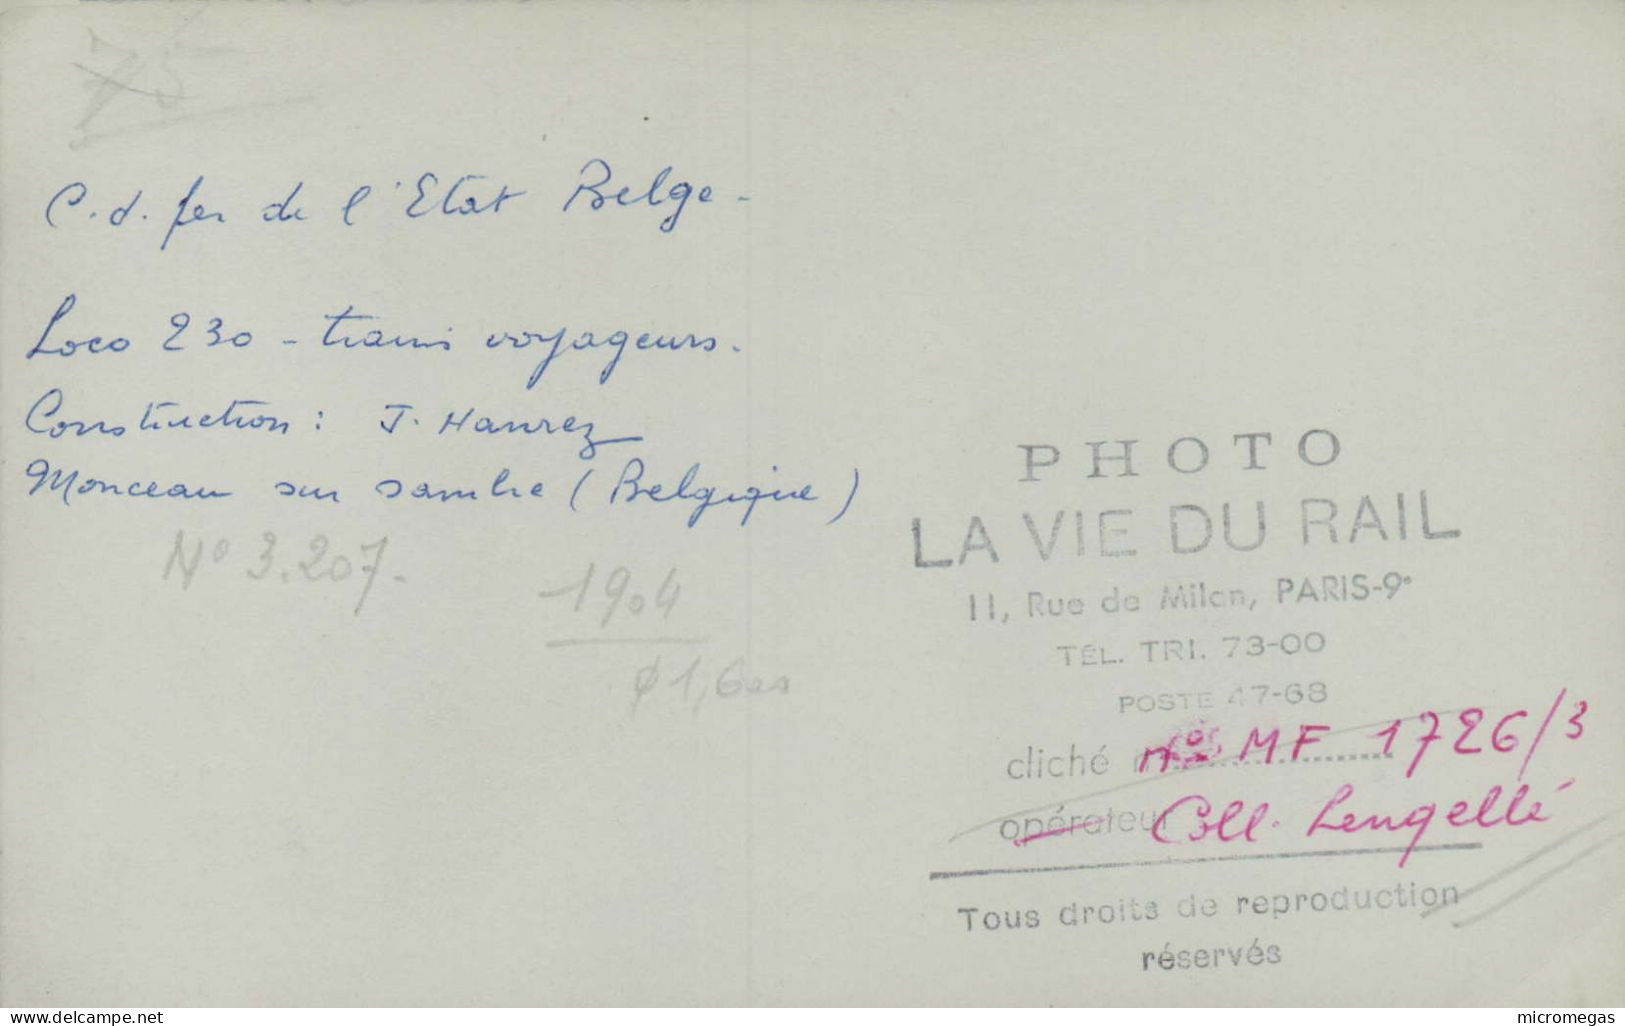 75
C.d. fer de l'Etat Belge -
Loco 230 - trains voyageurs.
Construction : J. Hanrez
Monceau sur sambre (Belgique)
N° 3.207.
1904
PHOTO
LA VIE DU RAIL
11, Rue de Milan, PARIS-9e
TÉL. TRI. 73-00
POSTE 47-68
cliché n° MF 1726/3
opérateur Coll. Lengellé
Tous droits de reproduction
réservés
delcampe.net
micromegas